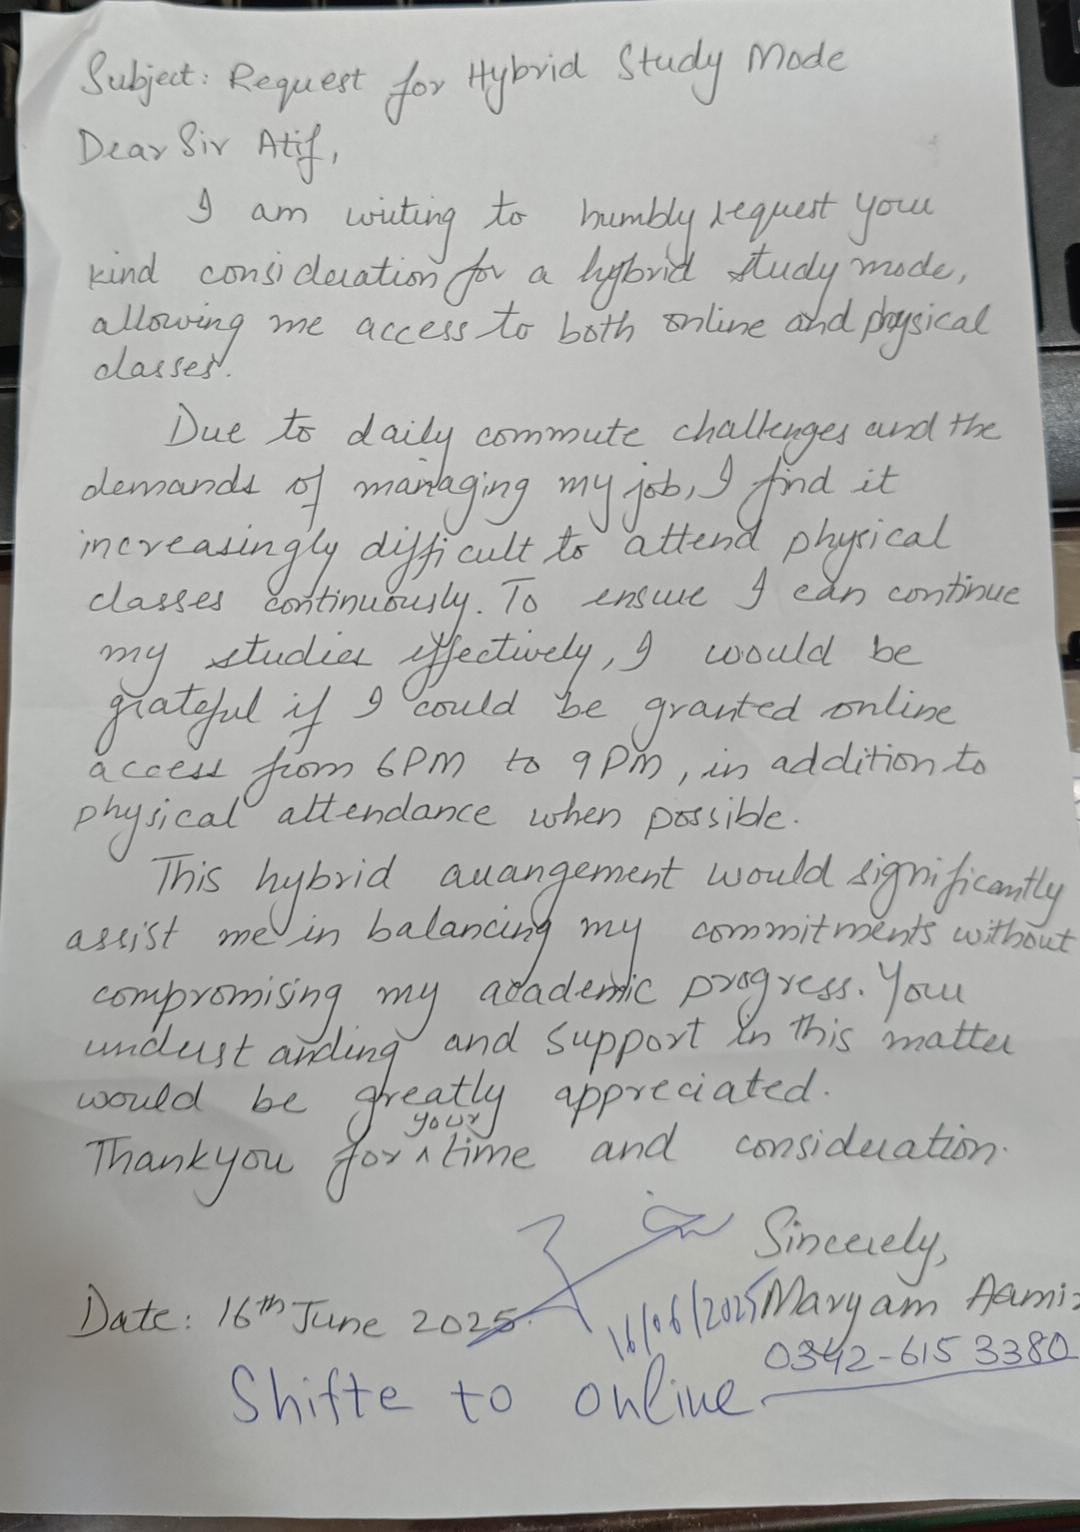 Subject: Request for Hybrid Study Mode
Dear Sir Atif,
I am writing to humbly request your
kind consideration for a hybrid study mode,
allowing me access to both online and physical
classes.
Due to daily commute challenges and the
demands of managing my job, I find it
increasingly difficult to attend physical
classes continuously. To ensure I can continue
my studies effectively, I would be
grateful if I could be granted online
access from 6PM to 9PM, in addition to
physical attendance when possible.
This hybrid arrangement would significantly
assist me in balancing my commitments without
compromising my academic progress. Your
understanding and support in this matter
would be greatly appreciated.
Thankyou for your time and consideration.
Sincerely,
Date: 16th June 2025. 16/06/2025 Maryam Aamir
0342-615 3380
Shifte to online